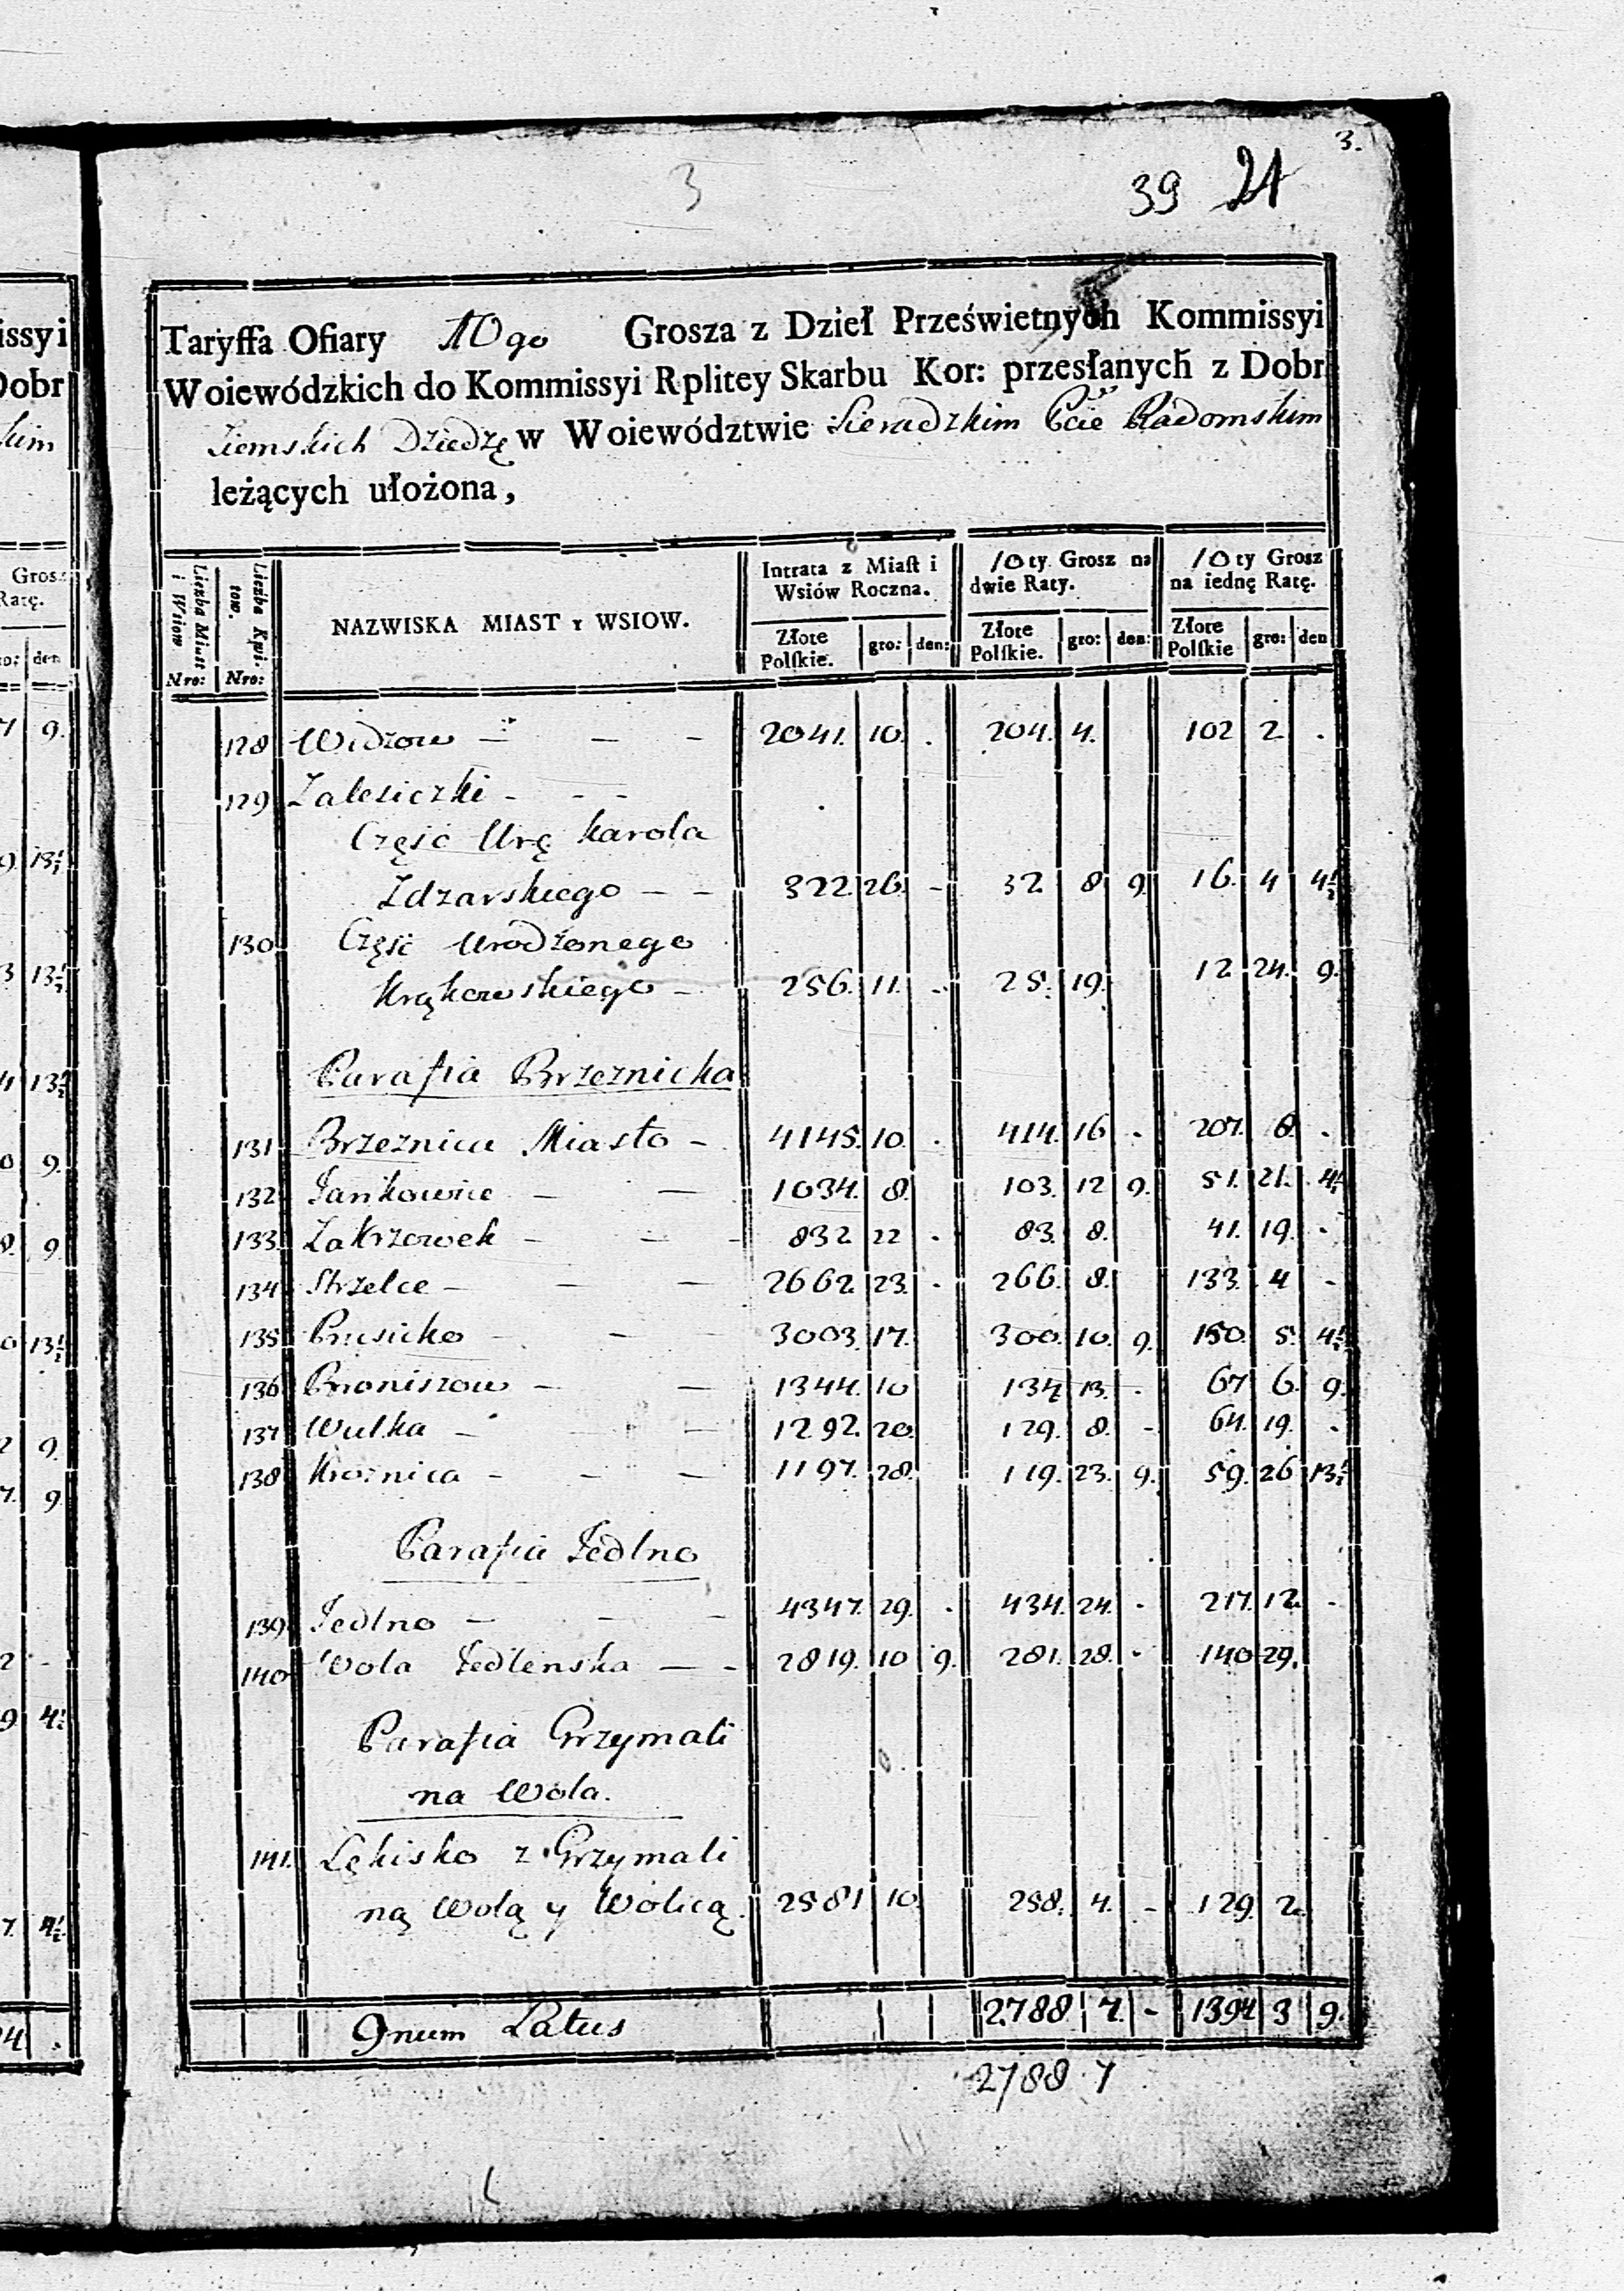 3.
3
39 24
Taryffa Ofiary 10go Grosza z Dzieł Prześwietnych Kommissyi
Woiewódzkich do Kommissyi Rplitey Skarbu Kor: przesłanych z Dobr
Ziemskich Dziedzę w Woiewództwie Sieradzkim Pcie Radomskim
leżących ułożona,
Liczba Miast i Wsiow Nro:
Liczba Kwitow. Nro:
NAZWISKA MIAST y WSIOW.
Intrata z Miast i Wsiów Roczna.
10ty Grosz na dwie Raty.
10ty Grosz na iednę Ratę.
Złote Polskie. gro: den: Złote Polskie. gro: den: Złote Polskie gro: den
128 Widzow — — - 2041. 10. . 204. 4. 102 2 .
129 Zalesiczki - - -
Część Urę Karola
Zdzarskiego — - 322. 26. - 32 8 9. 16. 4 4½
130 Część Urodzonego
Krąkowskiego - 256. 11. .. 25. 19. 12 24. 9.
Parafia Brzeznicka
131 Brzeznica Miasto - 4145. 10. . 414. 16 . 207. 8. .
132 Jankowice — — 1034. 8. 103. 12 9. 51. 21. 4½
133 Zakrzowek - — - 832 22 . 83. 8. 41. 19. .
134 Strzelce — — — 2662. 23. . 266. 8. 133. 4 -
135 Prusicko - — - 3003. 17. 300. 10. 9. 150. 5. 4½
136 Broniszow — — 1344. 10 134 13. . 67 6. 9.
137 Wulka — — 1292. 20. 129. 8. - 64. 19. .
138 Kroznica - - — 1197. 28. 119. 23. 9. 59. 26 13½
Parafia Jedlno
139 Jedlno — — — 4347. 29. . 434. 24. . 217. 12. -
140 Wola Jedlenska — - 2819. 10 9. 281. 28. . 140 29.
Parafia Grzymali
na Wola.
141. Lękisko z Grzymali
ną Wolą y Wolicą. 2581 10. 258. 4. - 129. 2.
9num Latus 2788 7. - 1394 3 9.
2788 7